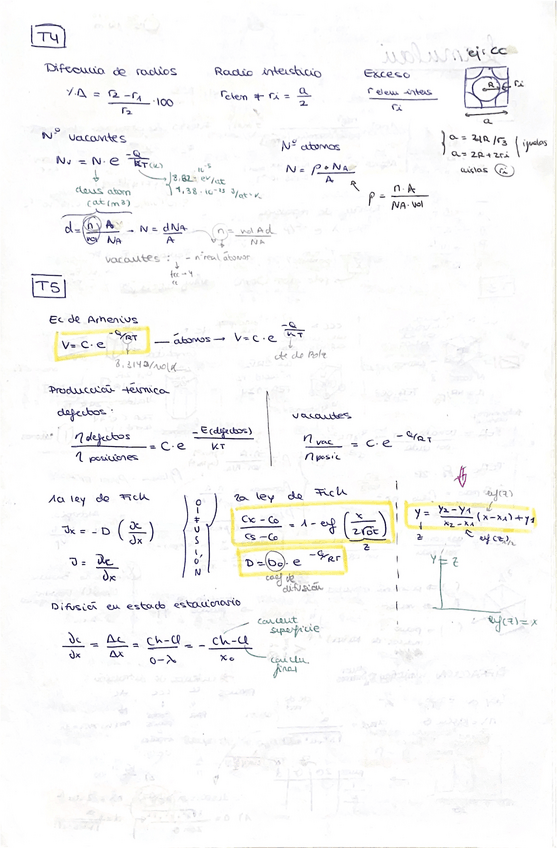 T4
ej: CC
Difecuria de radios
% Δ = (r2 - r1)/r2 · 100
Radio intersticio
relem + ri = a/2
Exceso
r elem inters / ri
R
ri
a
a = 4R/√3
a = 2R + 2ri
igualas
aislas ri
Nº vacantes
Nv = N · e^(-Q/KT(K))
8,62 · 10^-5 eV/at·K
1,38 · 10^-23 J/at·K
deus atom
(at/m3)
d = n/vol · A/NA → N = dNA/A
n = vol A d / NA
vacantes : - nº real átomos
Nº atomos
N = ρ * NA / A
ρ = n · A / NA · vol
T5
Ec de Arrhenius
V = C · e^(-Q/RT) — átomos → V = C · e^(-Q/KT)
8,314 J/mol·K
cte de Boltz
Producción térmica
defectos ·
η defectos / η posiciones = C · e^(-E(defectos)/KT)
vacantes
η vac / η posic = C · e^(-Q/RT)
1a ley de Fick
Jx = - D (dc/dx)
J = dc/dx
DIFUSION
2a ley de Fick
(Cx - Co)/(Cs - Co) = 1 - erf (x / 2√Dt)
z
D = Do · e^(-Q/RT)
coef de
difusión
erf(z)
y = (y2 - y1)/(x2 - x1) (x - x1) + y1
z
erf(z)
Y = z
erf(z) = x
Difusión en estado estacionario
dc/dx = Δc/Δx = (Ch - Cl)/(0 - λ) = - (Ch - Cl)/xo
concent
superficie